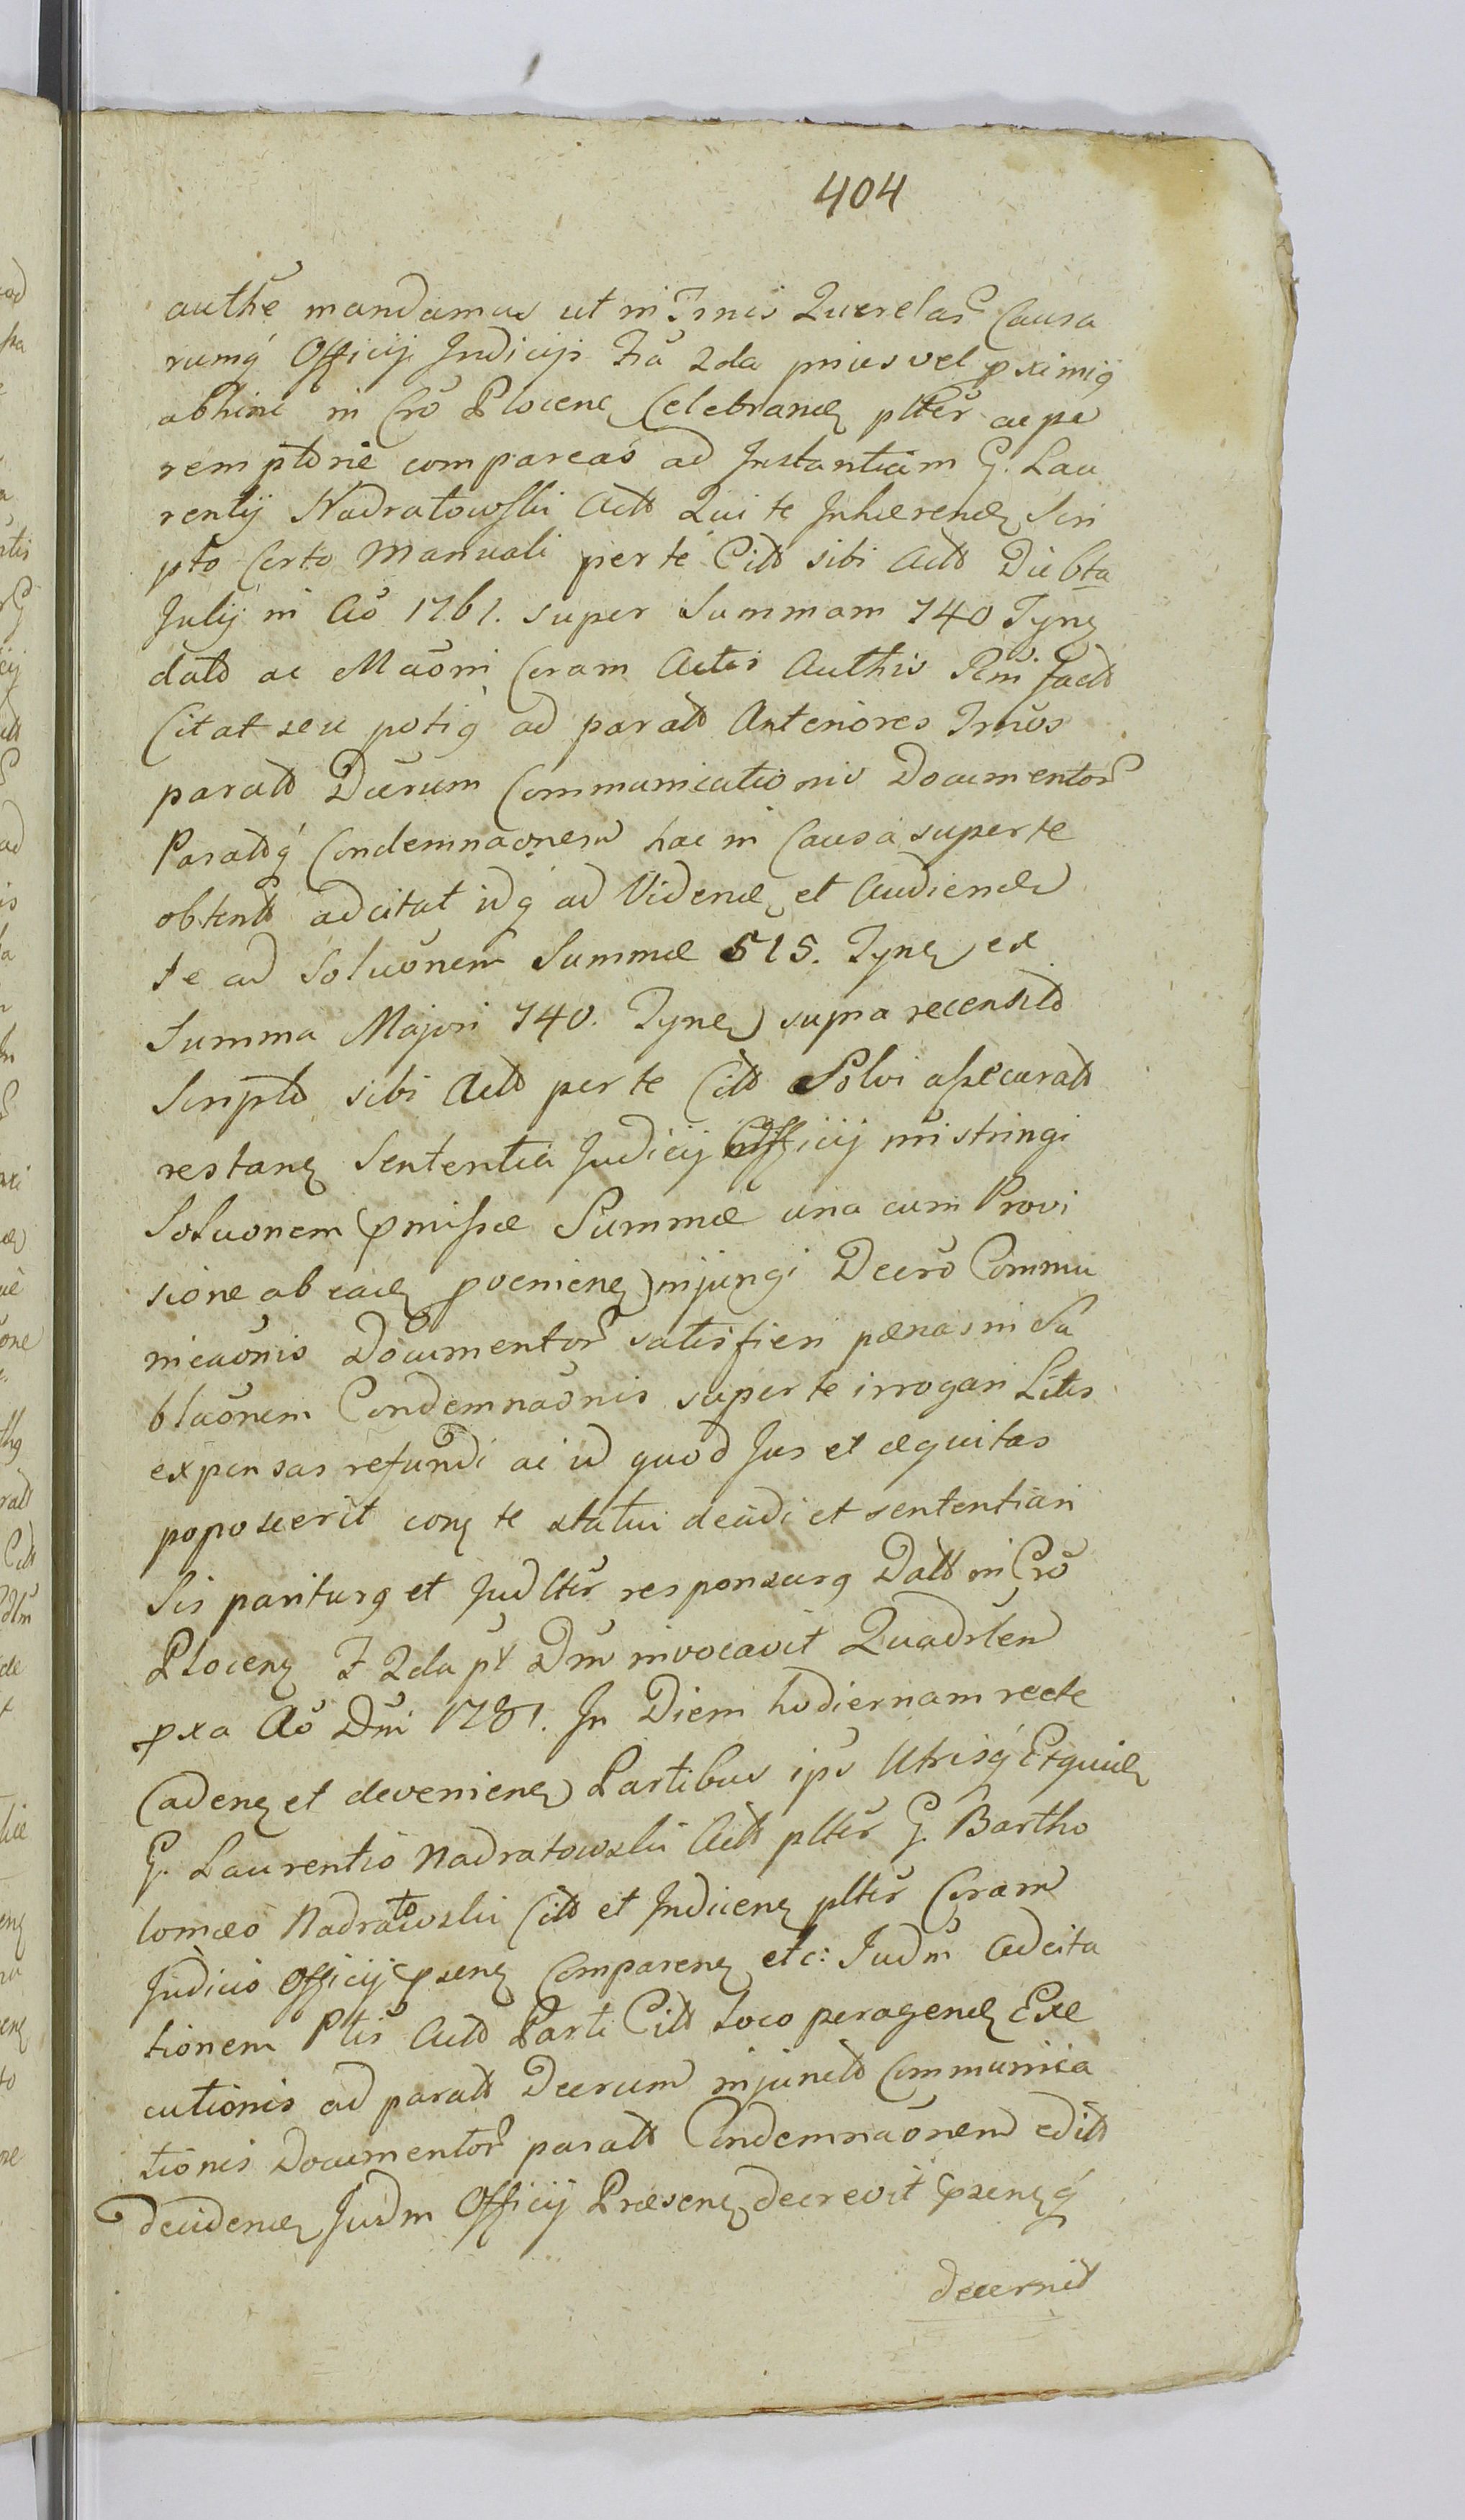 404
authe mandamus ut in Trnis Querelar Causa
rumq Officij Judicijs Fria 2da prius vel pximiq
abhinc in Cro Plocen Celebrand pltter ac pe
remptorie compareas ad Instantiam G. Lau
rentij Nadratowski Actt Qui te Inhaerend Scri
pto Certo Manuali per te Citt sibi Actt Die 6ta
Julij in Ao 1761. super Summam 740 Tynf
datt ac Coram Actis Authis factt
Citat seu potiq ad paratt Anteriores Trnos
paratt Decrum Communicationis Documentor
Parattq Condemnaonem hac in Causa super te
obtentt adcitat idq ad Vidend et Audiend
te ad Soluonem Summae 515. Tynf ex
Summa Majori 740. Tynf supra recensitt
Scriptt sibi Actt per te Citt Solvi assecuratt
restan Sententia Judicij Officij nri stringi
Soluonem pmissae Summae una cum Provi
sione ab ead pvenien injungi Decro Commu
nicaonis Documentor satisfieri paenas in Su
blaonem Condemnaonis super te irrogari Litis
expensas refundi ac id quod Jus et aequitas
poposcerit con te statui decidi et sententiari
Sis pariturq et Judltter responsurq Datt in Cro
Plocen F 2da pt Dnc invocavit Quadrlem
pxa Ao Dni 1781. In Diem hodiernam recte
Caden et devenien Partibus ips Utrisq Etquid
G. Laurentio Nadratowski Actt pltter G. Bartho
lomaeo Nadratowski Citt et Indicen pltter Coram
Judicio Officij psen Comparen etc: Judm Adcita
tionem Ptis Actt Parti Citt Loco peragend Exe
cutionis ad paratt Decrum injunctt Communica
tionis Documentor paratt Condemnaonem editt
decidend Judm Officij Praesen decrevit psenq
decernit